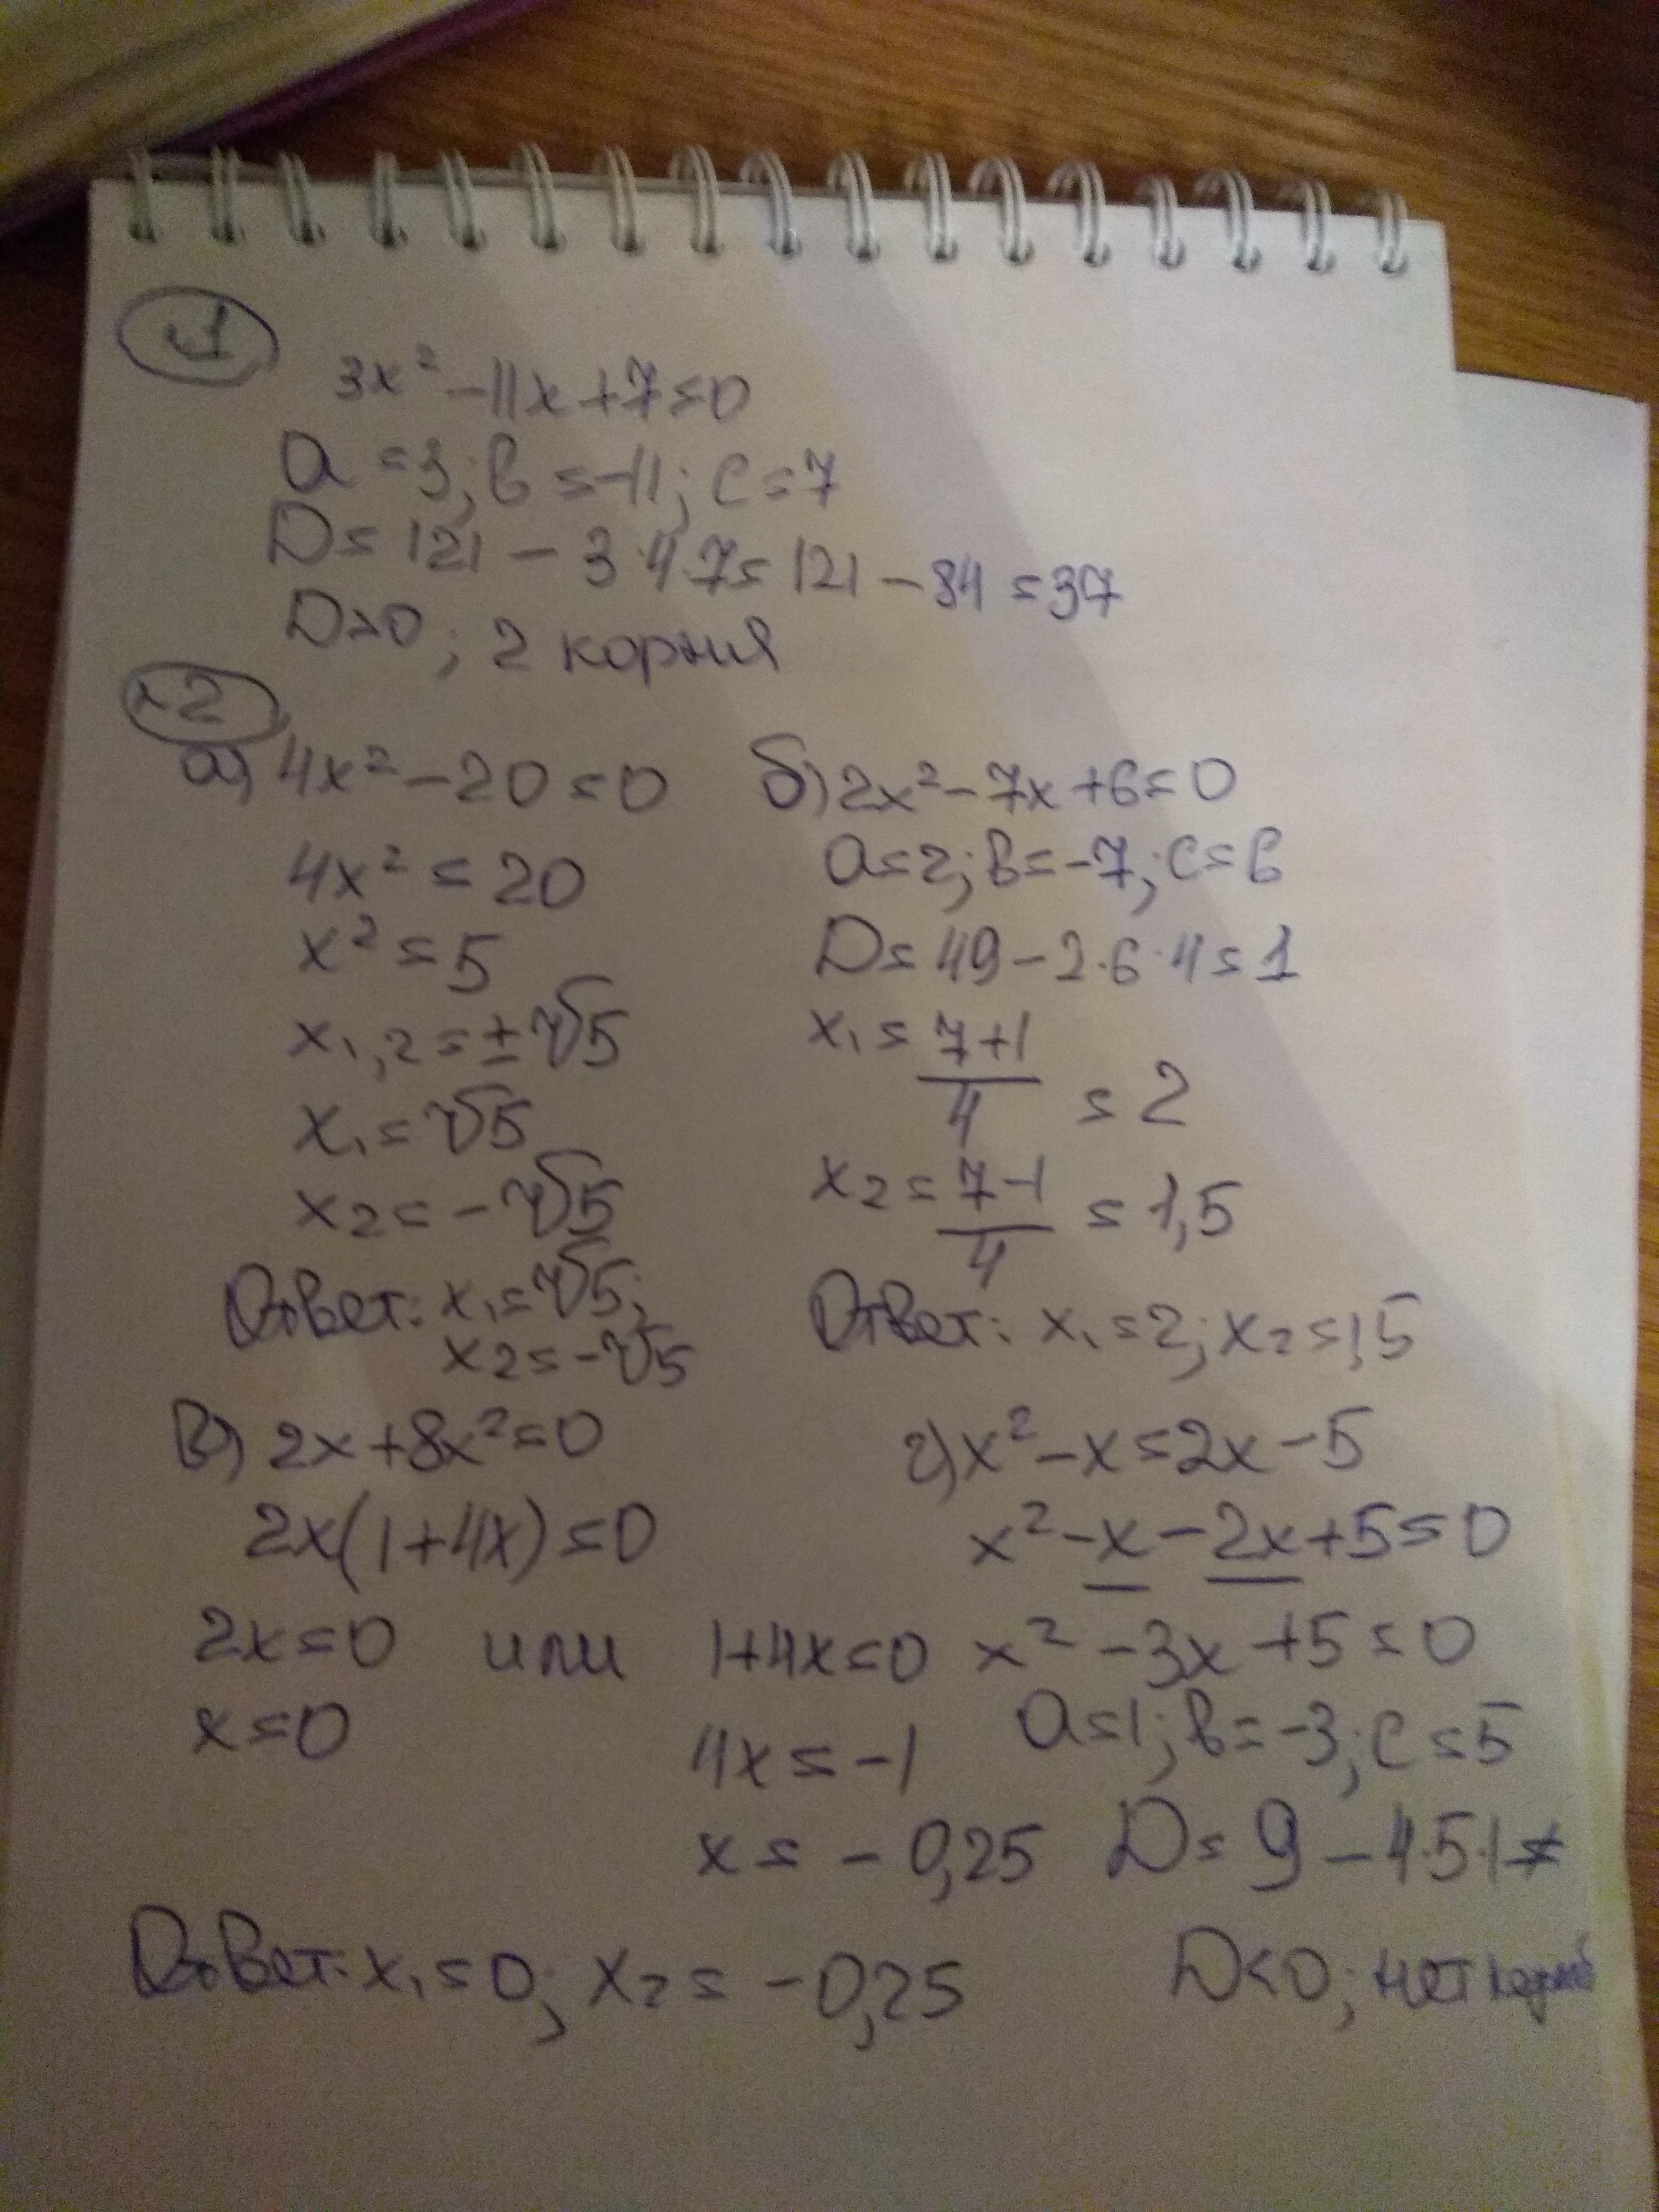 №1
3x² - 11x + 7 = 0
a = 3; b = -11; c = 7
D = 121 - 3·4·7 = 121 - 84 = 37
D > 0; 2 корня
№2
а) 4x² - 20 = 0
4x² = 20
x² = 5
x₁,₂ = ±√5
x₁ = √5
x₂ = -√5
Ответ: x₁ = √5;
x₂ = -√5
б) 2x² - 7x + 6 = 0
a = 2; b = -7; c = 6
D = 49 - 2·6·4 = 1
x₁ = (7+1)/4 = 2
x₂ = (7-1)/4 = 1,5
Ответ: x₁ = 2; x₂ = 1,5
в) 2x + 8x² = 0
2x(1 + 4x) = 0
2x = 0 или 1 + 4x = 0
x = 0
4x = -1
x = -0,25
Ответ: x₁ = 0; x₂ = -0,25
г) x² - x = 2x - 5
x² - x - 2x + 5 = 0
x² - 3x + 5 = 0
a = 1; b = -3; c = 5
D = 9 - 4·5·1 ≠
D < 0; нет корней